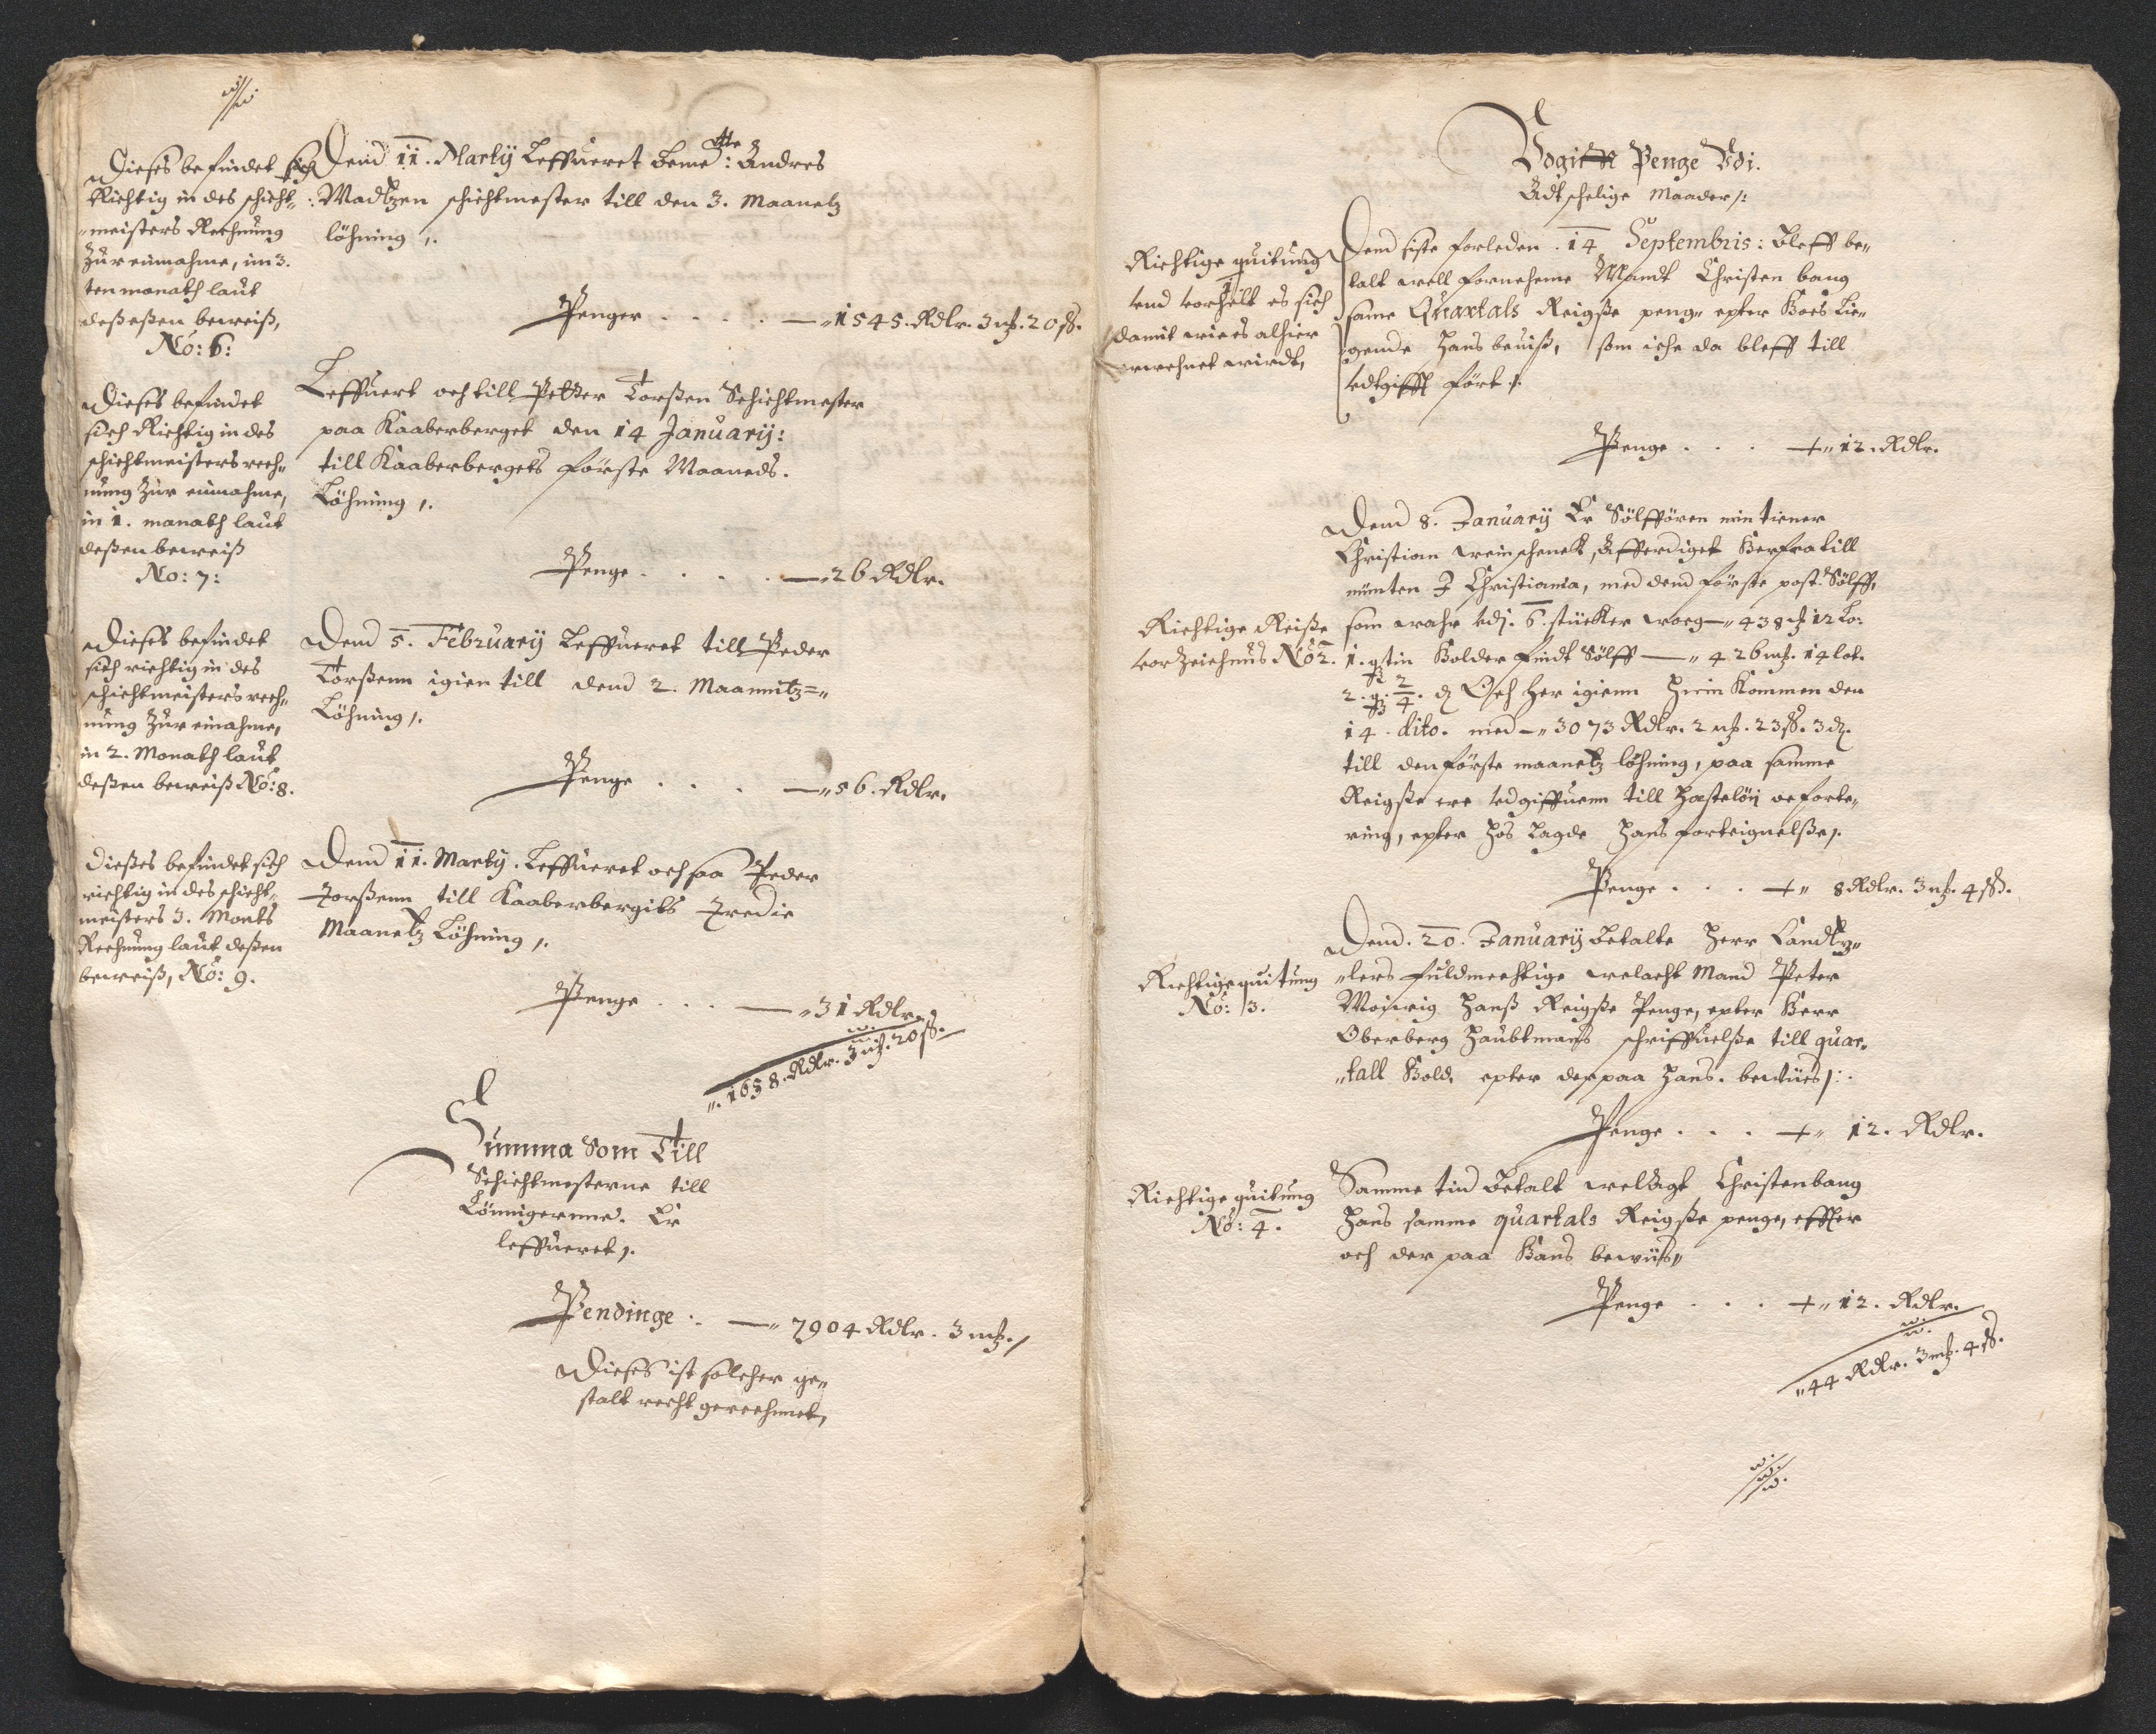 Dieses befindet sich
Richtig in des schicht„
„meisters Rechnung
Zur einnahme, im 3.
ten monath laut
deßeßen beweiß,
No: 6:
Dend 11. Martij Leffueret bemelte: Andres
Madtzen schichtmester till den 3. Maanetz
löhning ⁄.
Penger . . . . —„1545. Rdlr. 3 mk. 20 ß.
Dieses befindet
sich Richtig in des
schichtmeisters rech„
nung Zur einnahme,
in 1. monath laut
deßen beweiß
No: 7:
Leffuert och till Petter Torßen Schichtmester
paa Kaaberberget den 14 Januarij:
till Kaaberbergets förste Maaneds.
Löhning ⁄.
Penge . . . . —„26 Rdlr.
Dieses befindet
sich richtig in des
schichtmeisters rech„
nung Zur einahme,
in 2. Monath laut
deßen beweiß No: 8.
Dend 5. February Leffueret till Peder
Torßenn igien till dend 2. Maannitz=„
Löhning ⁄.
Penge . . . —„56. Rdlr.
Dießes befindet sich
richtig in des schicht„
meisters 3. Monts
Rechnung laut deßen
beweiß, No: 9.
Dend 11. Martij. Leffueret och saa Peder
Torßenn till Kaaberbergits Tredie
Maanetz Löhning ⁄.
Penge . . . —„31 Rdlr.
„. 1658. Rdlr. 3 mk. 20 ß.
Summa Som Till
Schichtmesterne till
Lönnigerne. Er
leffueret ⁄.
Pendinge . —„ 7904 Rdlr. 3 mk. ⁄
Dieses ist solcher ge„
stalt recht gerechnet,
Penge Vdi.
Adtschelige Maader ⁄:
Richtige quitung
1
vnd vorhelt es sich
damit wie es alhier
erwehnet wirdt,
Dend siste forleden . 14 Septembris: Bleff be„
talt well forneheme Mandt Christen bang
same Quartals Reigße peng„ epter Hoes Lie„
gende Hans beuiß, som iche da bleff till
vdtgifft fört ⁄.
Penge . . . +„12. Rdlr.
Dend 8. Januarij Er Sölffören min tiener
Christian weinschenck, Afferdiget Herfra till
münten I Christiania, med dend förste post. Sölff,
Richtige Reiße
vorzeichnus No 2.
som wahr vdj. 6. stücker woeg —„ 438 mk 12 Lo:
1. qtin Holder findt Sölff —„ 426 mk. 14 lot.
2. q. 2/4. d. Och her igienn Hiem Kommen den
14. dito. med —„ 3073 Rdlr. 2 mk. 23 ß. 3 d.
till den förste maanetz löhning, paa samme
Reigße ere vdgiffuenn till Hesteløn oc forte„
ring, epter Hos Lagde Hans forteignelße ⁄.
Penge . . . +„ 8 Rdlr. 3 mk. 4 ß.
Richtige quitung
No: 3.
Dend. 20. Januarij Betalte Herr Candtz„
„lers fuldmechtige welacht Mand Peter
Hanß Reigße Penge, epter Herr
Oberberg Haubtmans schriffuelße till quar„
„tall Hold. epter der paa Hans. bewiis ⁄:.
Penge . . . +„ 12. Rdlr.
Richtige quitung
No: 4.
Samme tiid Betalt welAgt Christen bang
Hans samme quartals Reigße penge, effter
och der paa Hans bewiis„
Penge . . . +„12. Rdlr.
„44 Rdlr. 3 mk. 4 ß.